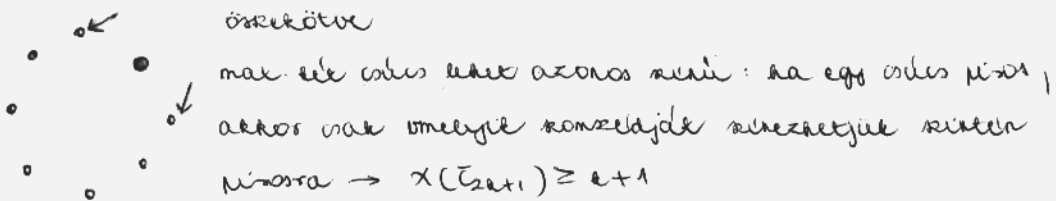 összekötve
max két csúcs lehet azonos színű: ha egy csúcs piros,
akkor csak vmelyik szomszédját színezhetjük szintén
pirosra → χ(C̅₂ₖ₊₁) ≥ k+1